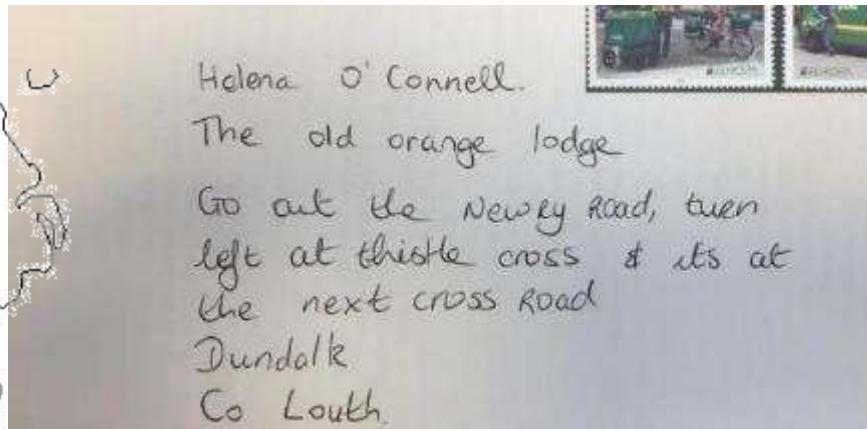 Helena O'Connell.
The old orange lodge
Go out the Newry Road, turn
left at thistle cross & its at
the next cross Road
Dundalk
Co Louth.